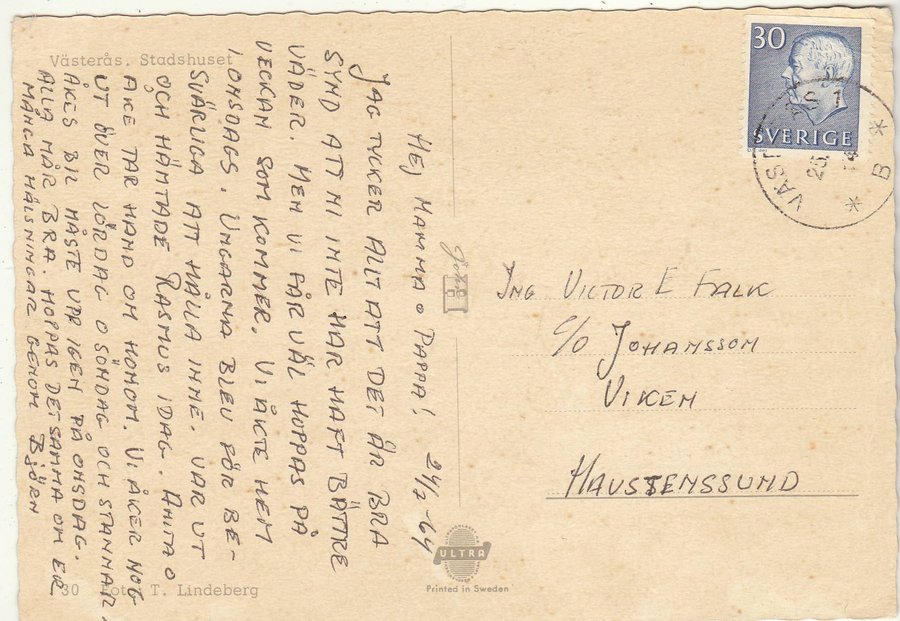 Västerås. Stadshuset
HEJ MAMMA O PAPPA! 24/7-64
JAG TYCKER ALLT ATT DET ÄR BRA
SYND ATT NI INTE HAR HAFT BÄTTRE
VÄDER. MEN VI FÅR VÄL HOPPAS PÅ
VECKAN SOM KOMMER. VI ÅKTE HEM
I ONSDAGS. UNGARNA BLEV FÖR BE-
SVÄRLIGA ATT HÅLLA INNE. VAR UT
OCH HÄMTADE RASMUS IDAG. ANITA O
ÅKE TAR HAND OM HONOM. VI ÅKER NOG
UT ÖVER LÖRDAG O SÖNDAG OCH STANNAR.
ÅKES BIL MÅSTE UPP IGEN PÅ ONSDAG.
ALLA MÅR BRA. HOPPAS DETSAMMA OM ER
MÅNGA HÄLSNINGAR GENOM BJÖRN
30 Foto: T. Lindeberg
ULTRA
Printed in Sweden
30
SVERIGE
1
25.
* B *
ING VICTOR E FALK
C/O JOHANSSON
VIKEN
HAVSTENSSUND